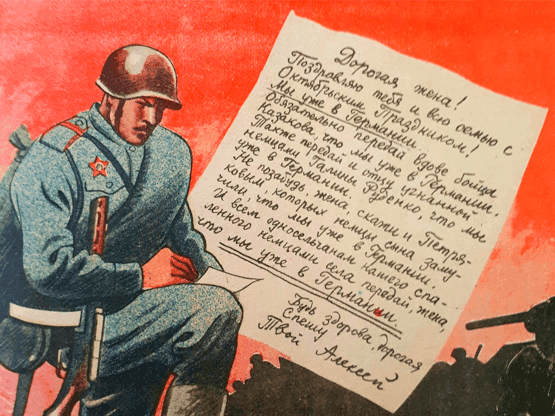 Дорогая жена!
Поздравляю тебя и всю семью с
Октябрьским Праздником!
Мы уже в Германии.
Обязательно передай вдове бойца
Казакова, что мы уже в Германии.
Также передай и отцу угнанной
немцами, Галины Руденко, что мы
уже в Германии.
Не позабудь, жена, скажи и Петря-
ковым, которых немцы сына заму-
чили, что мы уже в Германии.
И всем односельчанам нашего спа-
ленного немцами села передай, жена,
что мы уже в Германии.
Будь здорова, дорогая
Спешу
Твой Алексей